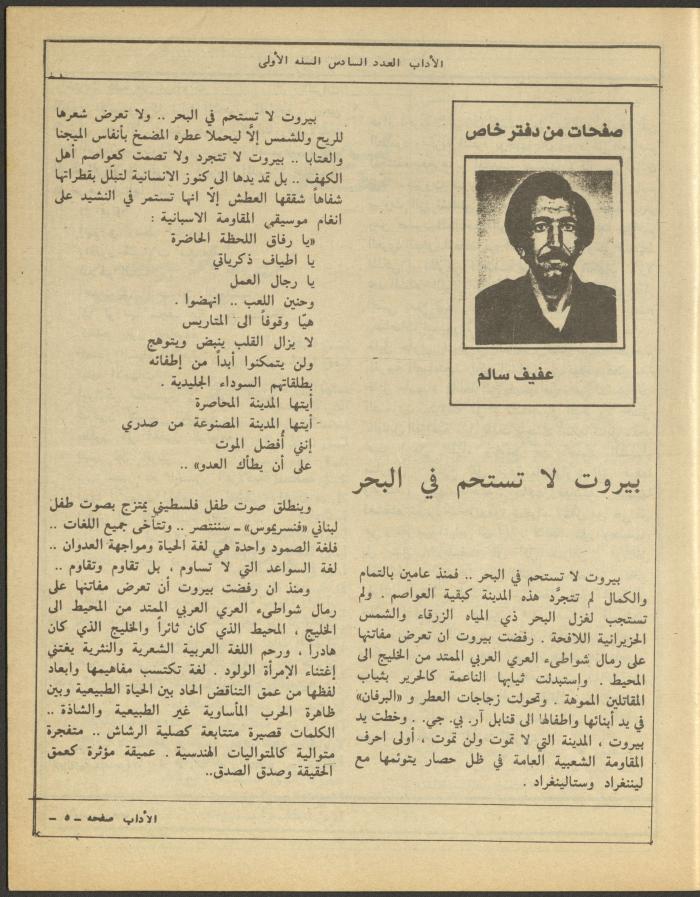 الآداب العدد السادس السنه الأولى
صفحات من دفتر خاص
عفيف سالم
بيروت لا تستحم في البحر
بيروت لا تستحم في البحر .. فمنذ عامين بالتمام
والكمال لم تتجرَّد هذه المدينة كبقية العواصم . ولم
تستجب لغزل البحر ذي المياه الزرقاء والشمس
الحزيرانية اللافحة . رفضت بيروت ان تعرض مفاتنها
على رمال شواطىء العري العربي الممتد من الخليج الى
المحيط . واستبدلت ثيابها الناعمة كالحرير بثياب
المقاتلين المموهة . وتحولت زجاجات العطر و «البرفان»
في يد أبنائها واطفالها الى قنابل آر. بي. جي. . وخطت يد
بيروت ، المدينة التي لا تموت ولن تموت ، أولى احرف
المقاومة الشعبية العامة في ظل حصار يتوئمها مع
ليننغراد وستالينغراد .
بيروت لا تستحم في البحر .. ولا تعرض شعرها
للريح وللشمس إلّا ليحملا عطره المضمخ بأنفاس الميجنا
والعتابا .. بيروت لا تتجرد ولا تصمت كعواصم أهل
الكهف .. بل تمد يدها الى كنوز الانسانية لتبلّل بقطراتها
شفاهاً شققها العطش إلّا انها تستمر في النشيد على
انغام موسيقى المقاومة الاسبانية :
«يا رفاق اللحظة الحاضرة
يا اطياف ذكرياتي
يا رجال العمل
وحنين اللعب .. انهضوا .
هيّا وقوفاً الى المتاريس
لا يزال القلب ينبض ويتوهج
ولن يتمكنوا أبداً من إطفائه
بطلقاتهم السوداء الجليدية .
أيتها المدينة المحاصرة
أيتها المدينة المصنوعة من صدري
إنني أُفضل الموت
على أن يطأك العدو» ..
وينطلق صوت طفل فلسطيني يمتزج بصوت طفل
لبناني «فنسريموس» ــ سننتصر .. وتتآخى جميع اللغات ..
فلغة الصمود واحدة هي لغة الحياة ومواجهة العدوان ..
لغة السواعد التي لا تساوم ، بل تقاوم وتقاوم ..
ومنذ ان رفضت بيروت أن تعرض مفاتنها على
رمال شواطىء العري العربي الممتد من المحيط الى
الخليج ، المحيط الذي كان ثائراً والخليج الذي كان
هادراً ، ورحم اللغة العربية الشعرية والنثرية يغتني
إغتناء الإمرأة الولود . لغة تكتسب مفاهيمها وابعاد
لفظها من عمق التناقض الحاد بين الحياة الطبيعية وبين
ظاهرة الحرب المأساوية غير الطبيعية والشاذة ..
الكلمات قصيرة متتابعة كصلية الرشاش .. متفجرة
متوالية كالمتواليات الهندسية . عميقة مؤثرة كعمق
الحقيقة وصدق الصدق..
الآداب صفحه ــ ٥ ــ